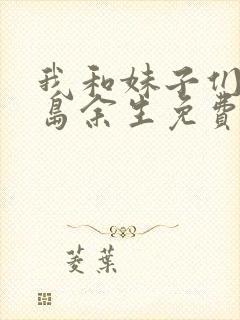 我和妹子们
岛余生免费
菱葉